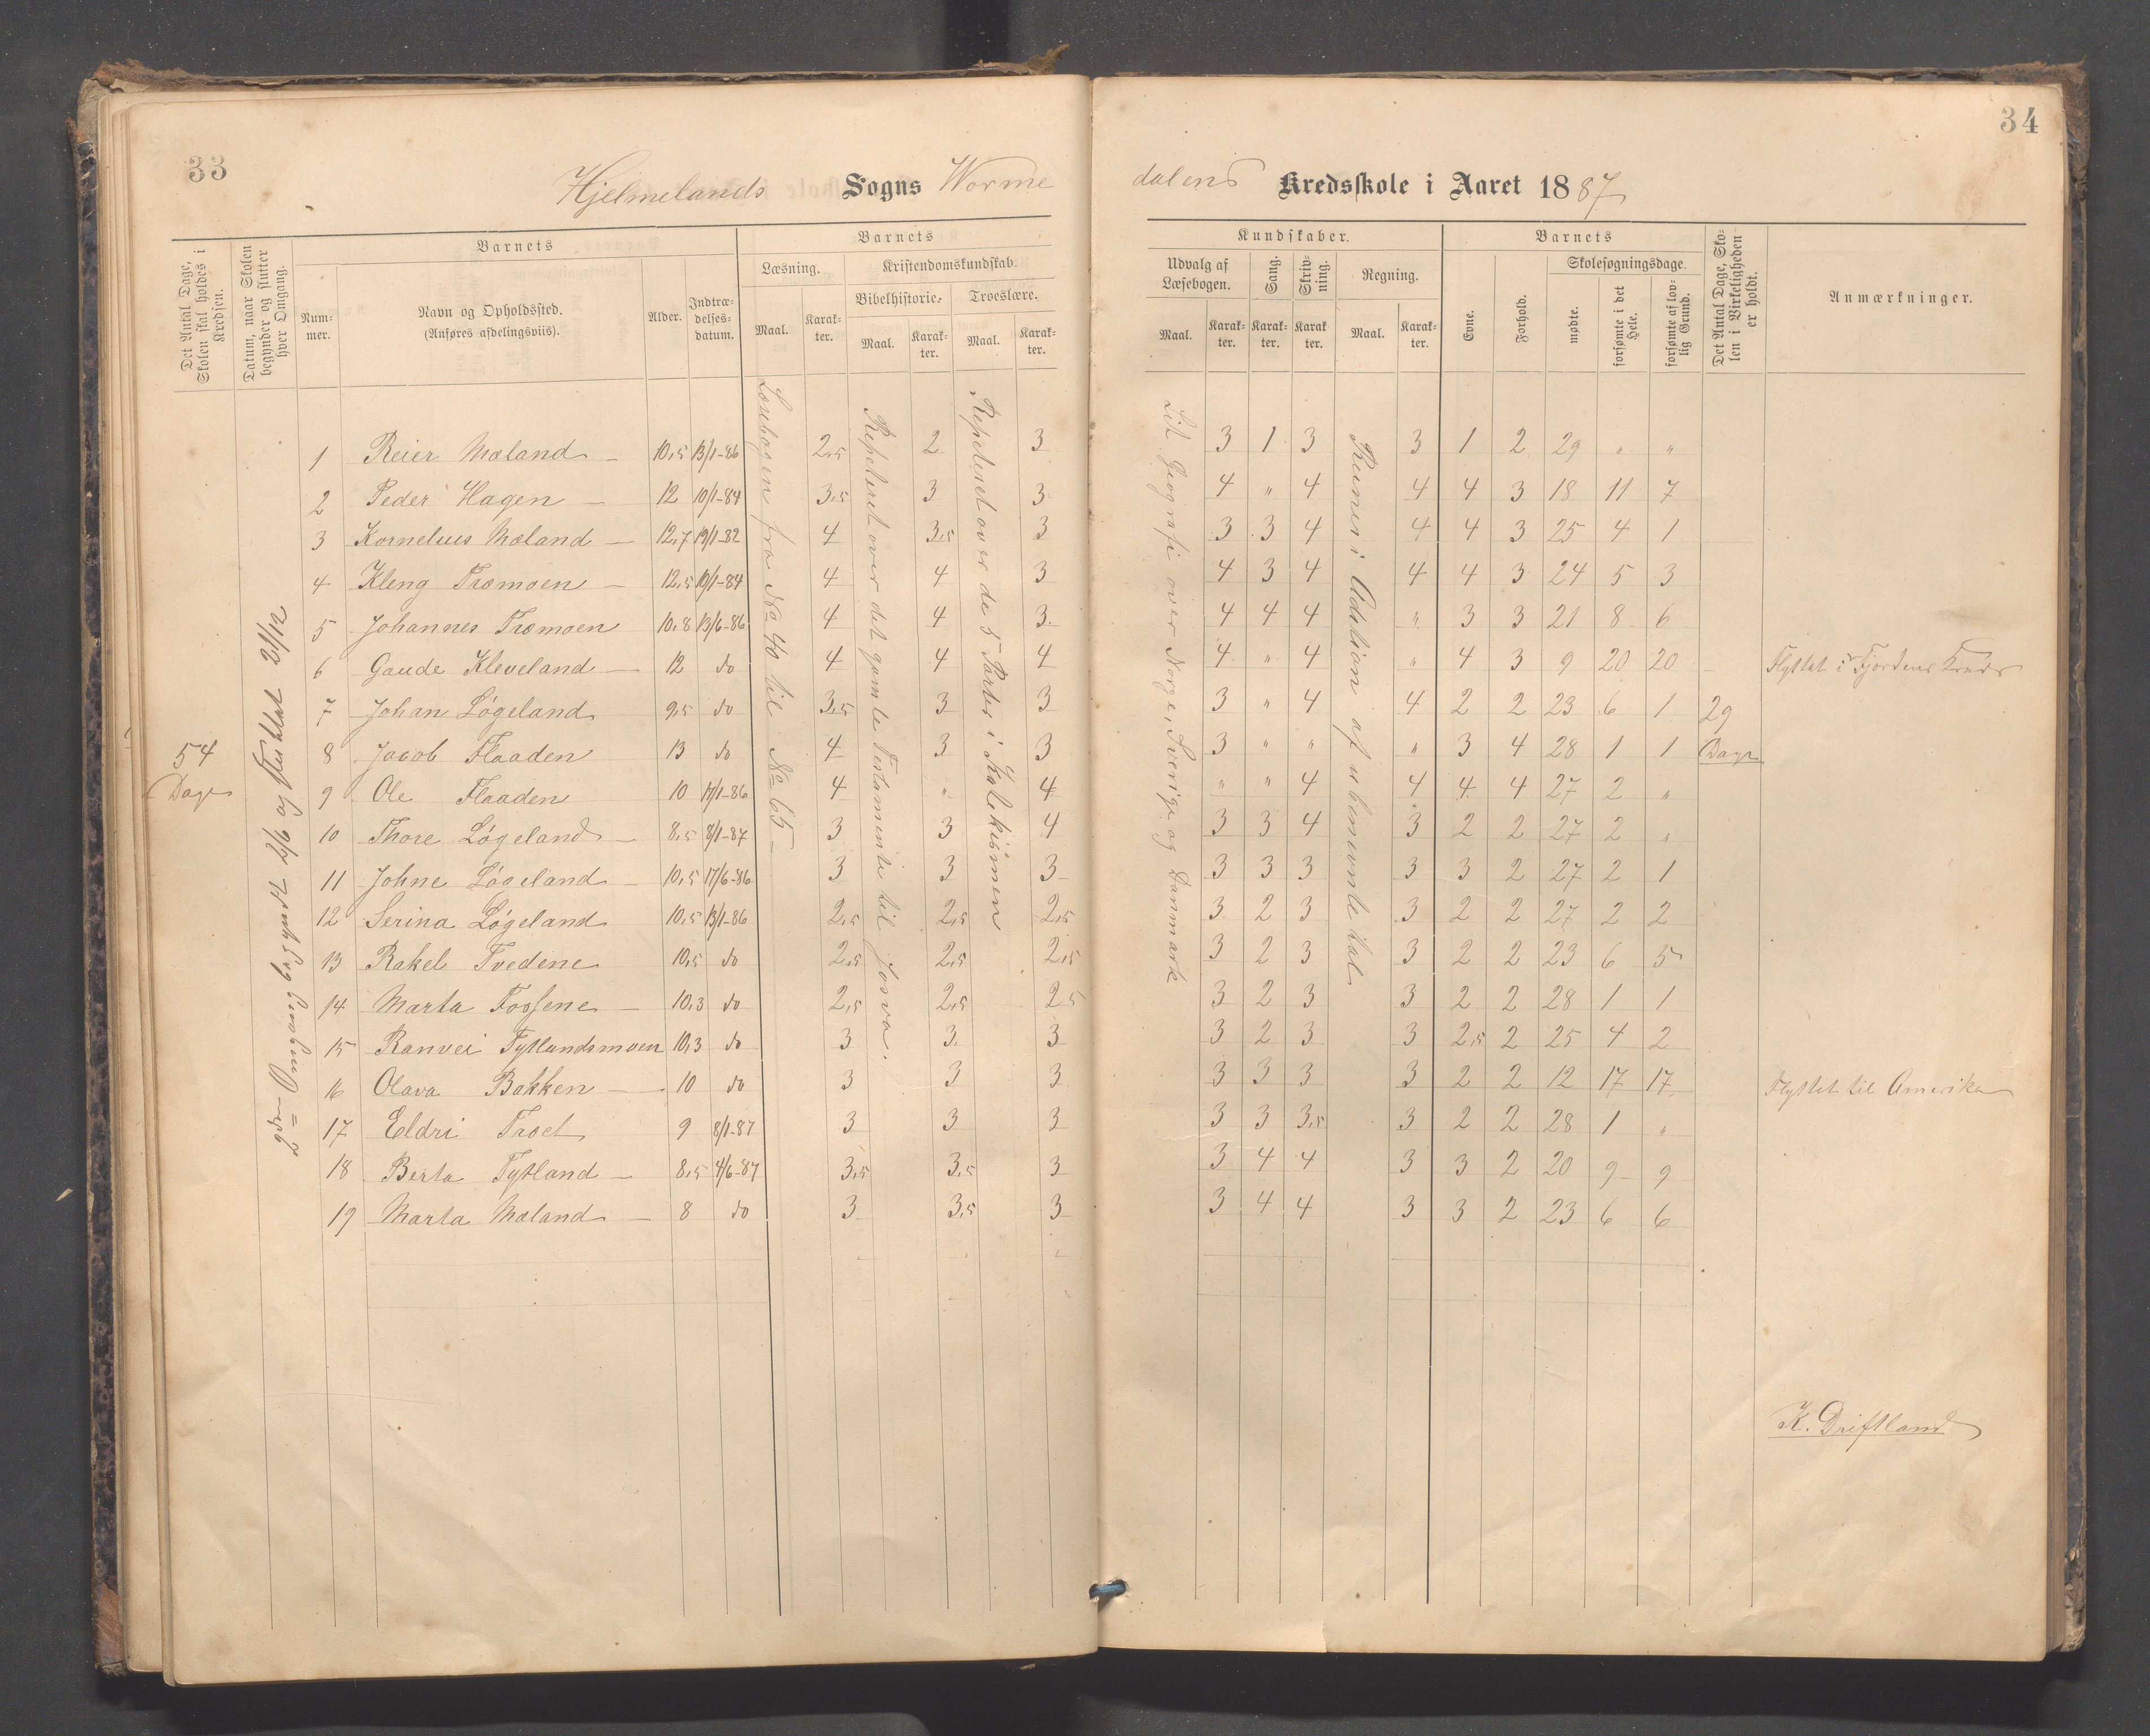 33
34
Hjelmelands Sogns Worme
dalens Kredsskole i Aaret 1887
Det Antal Dage, Skolen skal holdes i Kredsen.
Datum, naar Skolen begynder og slutter hver Omgang.
Barnets
Nummer.
Navn og Opholdssted.
(Anføres afdelingsviis).
Alder.
Indtrædelsesdatum.
Barnets
Læsning.
Maal. Karakter.
Kristendomskundskab.
Bibelhistorie. Troeslære.
Maal. Karakter. Maal. Karakter.
Kundskaber.
Udvalg af Læsebogen. Sang. Skrivning. Regning.
Maal. Karakter. Karakter. Karakter. Maal. Karakter.
Barnets
Evne. Forhold.
Skolesøgningsdage.
mødte. forsømte i det Hele. forsømte af lovlig Grund.
Det Antal Dage, Skolen i Virkeligheden er holdt.
Anmærkninger.
54 Dage
2den Omgang begyndt 2/6 og sluttet 21/12
Læsebogen fra No 40 til No 65
Repeteret over det gamle Testamente til Josva.
Repeteret over de 5 Parter i Katekismen
Lit Geografi over Norge, Sverige og Danmark
Reunes i Adition af ubenevnte tal
1 Reier Mæland 10,5 13/1-86 2,5 2 3 3 1 3 3 1 2 29 " "
2 Peder Hagen 12 10/1-84 3,5 3 3 4 " 4 4 4 3 18 11 7
3 Kornelius Mæland 12,7 19/1-82 4 3,5 3 3 3 4 4 4 3 25 4 1
4 Kleng Træmoen 12,5 10/1-84 4 4 3 4 3 4 4 4 3 24 5 3
5 Johannes Træmoen 10,8 13/6-86 4 4 3 4 4 4 " 3 3 21 8 6
6 Gaude Kleveland 12 do 4 4 4 4 " 4 " 4 3 9 20 20 Flyttet i Fjordens Kreds
7 Johan Løgeland 9,5 do 3,5 3 3 3 " 4 4 2 2 23 6 1 29
8 Jacob Flaaden 13 do 4 3 3 3 " " " 3 4 28 1 1 Dage
9 Ole Flaaden 10 17/1-86 4 " 4 " " 4 4 4 4 27 2 "
10 Thore Løgeland 8,5 8/1-87 3 3 4 3 3 4 3 2 2 27 2 "
11 Johne Løgeland 10,5 17/6-86 3 3 3 3 3 3 3 3 2 27 2 1
12 Serina Løgeland 10,5 13/1-86 2,5 2,5 2,5 3 2 3 3 2 2 27 2 2
13 Rakel Tvedene 10,5 do 2,5 2,5 2,5 3 2 3 3 2 2 23 6 5
14 Marta Fossene 10,3 do 2,5 2,5 2,5 3 2 3 3 2 2 28 1 1
15 Ranvei Tytlandsmoen 10,3 do 3 3 3 3 2 3 3 2,5 2 25 4 2
16 Olava Bakken 10 do 3 3 3 3 3 3 3 2 2 12 17 17 Flyttet til Amerika
17 Eldri Træet 9 8/1-87 3 3 3 3 3 3,5 3 2 2 28 1 "
18 Berta Tytland 8,5 4/6-87 3,5 3,5 3 3 4 4 3 3 2 20 9 9
19 Marta Mæland 8 do 3 3,5 3 3 4 4 3 3 2 23 6 6
K. Driftland